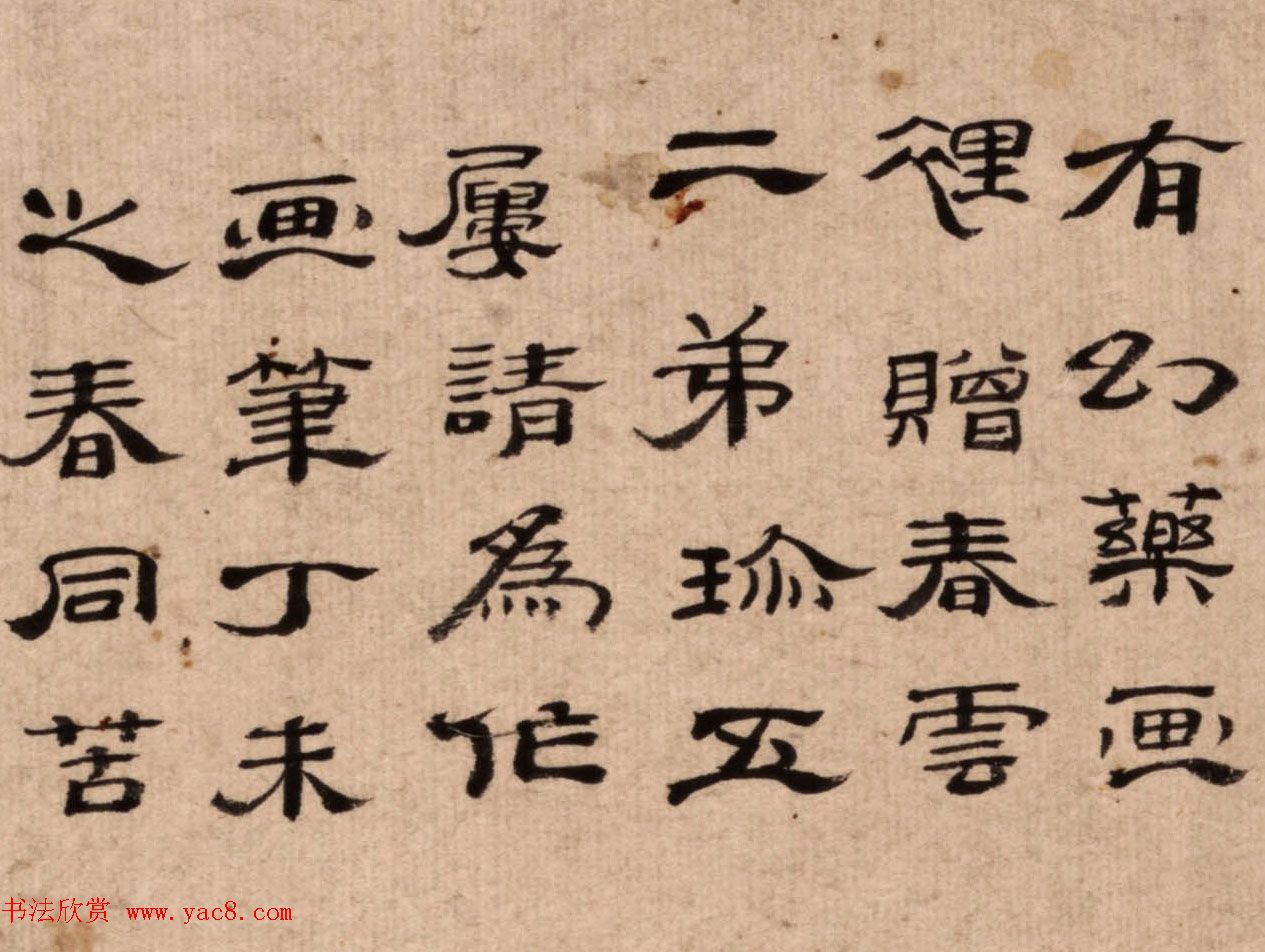 有幻藥画
裡贈春雲
二弟珎五
屢請為作
画筆丁未
之春同苦
书法欣赏 www.yac8.com